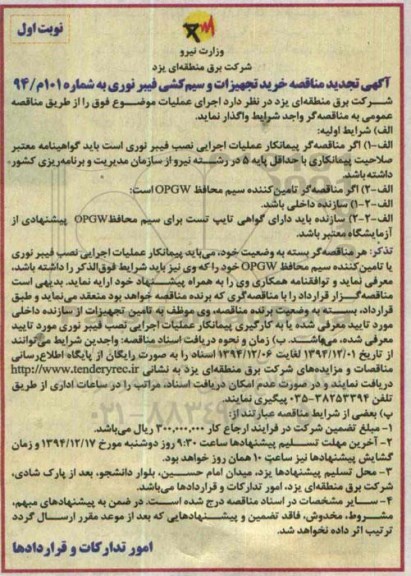 نوبت اول
وزارت نیرو
شرکت برق منطقه‌ای یزد
آگهی تجدید مناقصه خرید تجهیزات و سیم‌کشی فیبر نوری به شماره ۱۰۱م/۹۴
شرکت برق منطقه‌ای یزد در نظر دارد اجرای عملیات موضوع فوق را از طریق مناقصه
عمومی به مناقصه‌گر واجد شرایط واگذار نماید.
الف) شرایط اولیه:
الف-۱) اگر مناقصه‌گر پیمانکار عملیات اجرایی نصب فیبر نوری است باید گواهینامه معتبر
صلاحیت پیمانکاری با حداقل پایه ۵ در رشته نیرو از سازمان مدیریت و برنامه‌ریزی کشور
داشته باشد.
الف-۲) اگر مناقصه‌گر تامین‌کننده سیم محافظ OPGW است:
الف-۲-۱) سازنده داخلی باشد.
الف-۲-۲) سازنده باید دارای گواهی تایپ تست برای سیم محافظ OPGW پیشنهادی از
آزمایشگاه معتبر باشد.
تذکر: هر مناقصه‌گر بسته به وضعیت خود، می‌باید پیمانکار عملیات اجرایی نصب فیبر نوری
یا تامین‌کننده سیم محافظ OPGW خود را که وی نیز باید شرایط فوق‌الذکر را داشته باشد،
معرفی نماید و توافقنامه همکاری وی را به همراه پیشنهاد خود ارایه نماید. بدیهی است
مناقصه‌گزار قرارداد را با مناقصه‌گری که برنده مناقصه خواهد بود منعقد می‌نماید و طبق
قرارداد، بسته به وضعیت برنده مناقصه، وی موظف به تامین تجهیزات از سازنده داخلی
مورد تایید معرفی شده یا به کارگیری پیمانکار عملیات اجرایی نصب فیبر نوری مورد تایید
معرفی شده، می‌باشد. ب) زمان و نحوه دریافت اسناد مناقصه: واجدین شرایط می‌توانند
از تاریخ ۱۳۹۴/۱۲/۰۱ لغایت ۱۳۹۴/۱۲/۰۶ اسناد را به صورت رایگان از پایگاه اطلاع‌رسانی
مناقصات و مزایده‌های شرکت برق منطقه‌ای یزد به نشانی http://www.tenderyrec.ir
دریافت نمایند و در صورت عدم امکان دریافت اسناد، مراتب را در ساعات اداری از طریق
تلفن ۳۸۲۵۳۳۹۴-۰۳۵ پیگیری نمایند.
پ) بعضی از شرایط مناقصه عبارتند از:
۱- مبلغ تضمین شرکت در فرایند ارجاع کار ۳۰۰,۰۰۰,۰۰۰ ریال می‌باشد.
۲- آخرین مهلت تسلیم پیشنهادها ساعت ۹:۳۰ روز دوشنبه مورخ ۱۳۹۴/۱۲/۱۷ و زمان
گشایش پیشنهادها نیز ساعت ۱۰ همان روز خواهد بود.
۳- محل تسلیم پیشنهادها یزد، میدان امام حسین، بلوار دانشجو، بعد از پارک شادی،
شرکت برق منطقه‌ای یزد، امور تدارکات و قراردادها می‌باشد.
۴- سایر مشخصات در اسناد مناقصه درج شده است. در ضمن به پیشنهادهای مبهم،
مشروط، مخدوش، فاقد تضمین و پیشنهادهایی که بعد از موعد مقرر ارسال گردد
ترتیب اثر داده نخواهد شد.
امور تدارکات و قراردادها